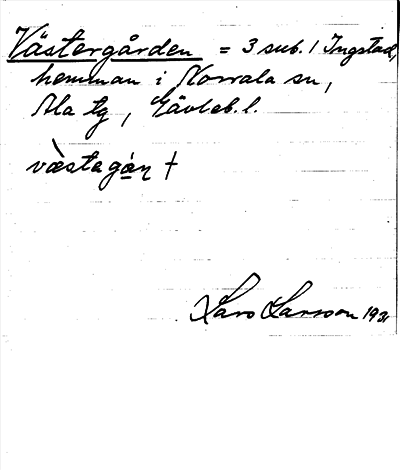 Västergården = 3 sub. / Ingstad,
hemman i Norrala sn,
Ala tg, Gävleb. l.
væ̀stagạ̊ɳ †
Lars Larsson 1931